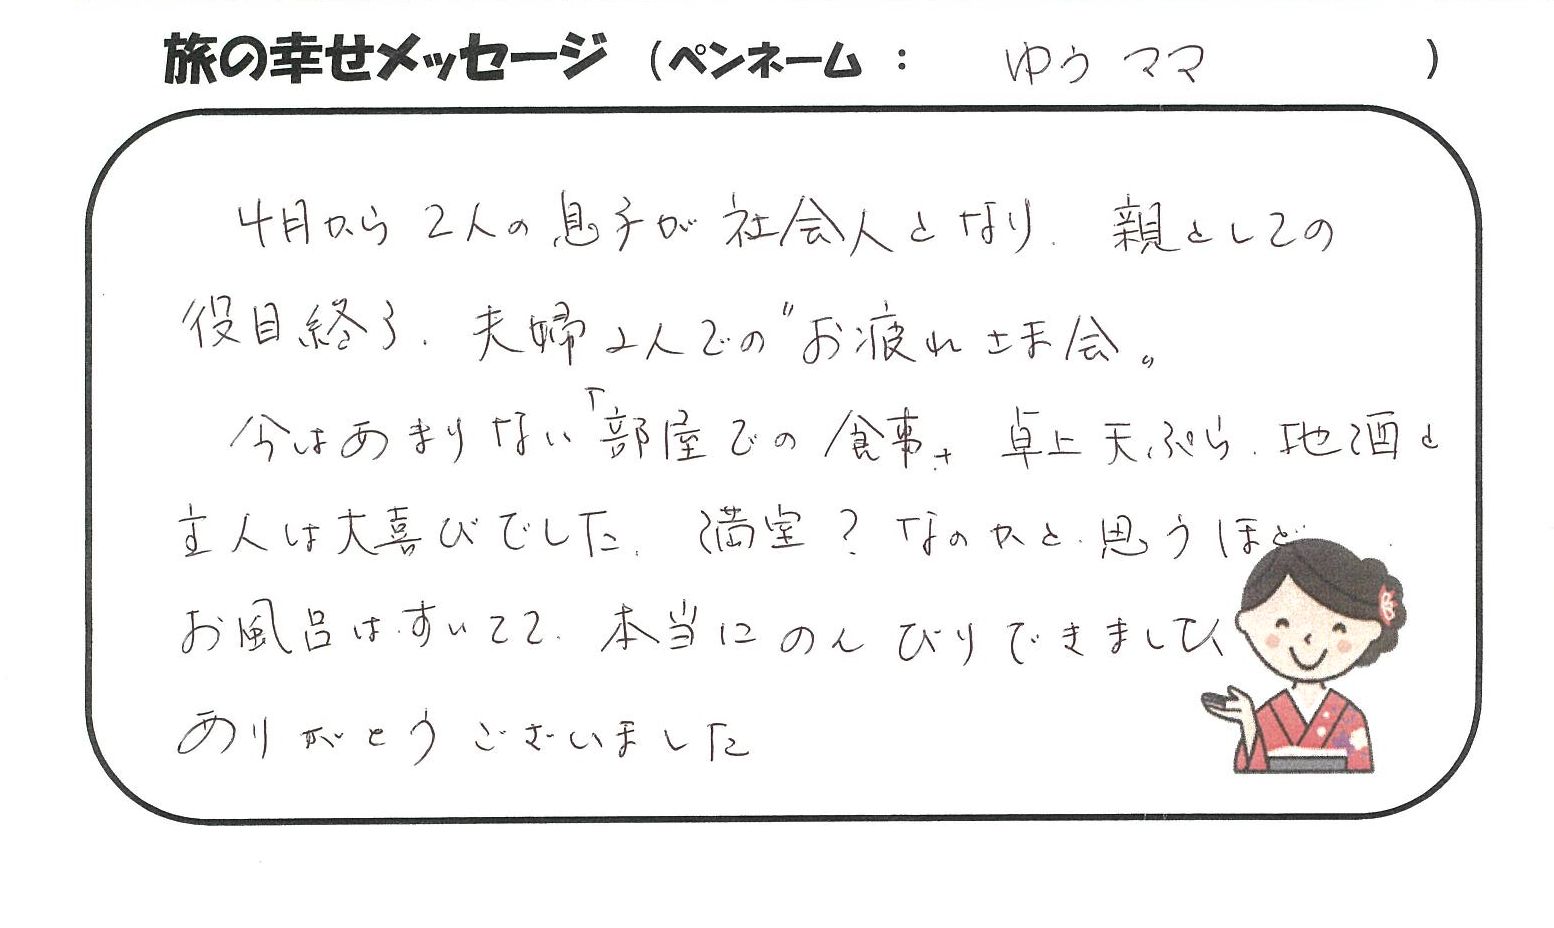 旅の幸せメッセージ (ペンネーム : ゆうママ )
4月から2人の息子が社会人となり、親としての
役目終了、夫婦2人での〝お疲れさま会〟
今はあまりない「部屋での食事、卓上天ぷら、地酒と
主人は大喜びでした。満室?なのかと思うほど
お風呂はすいてて、本当にのんびりできました
ありがとうございました